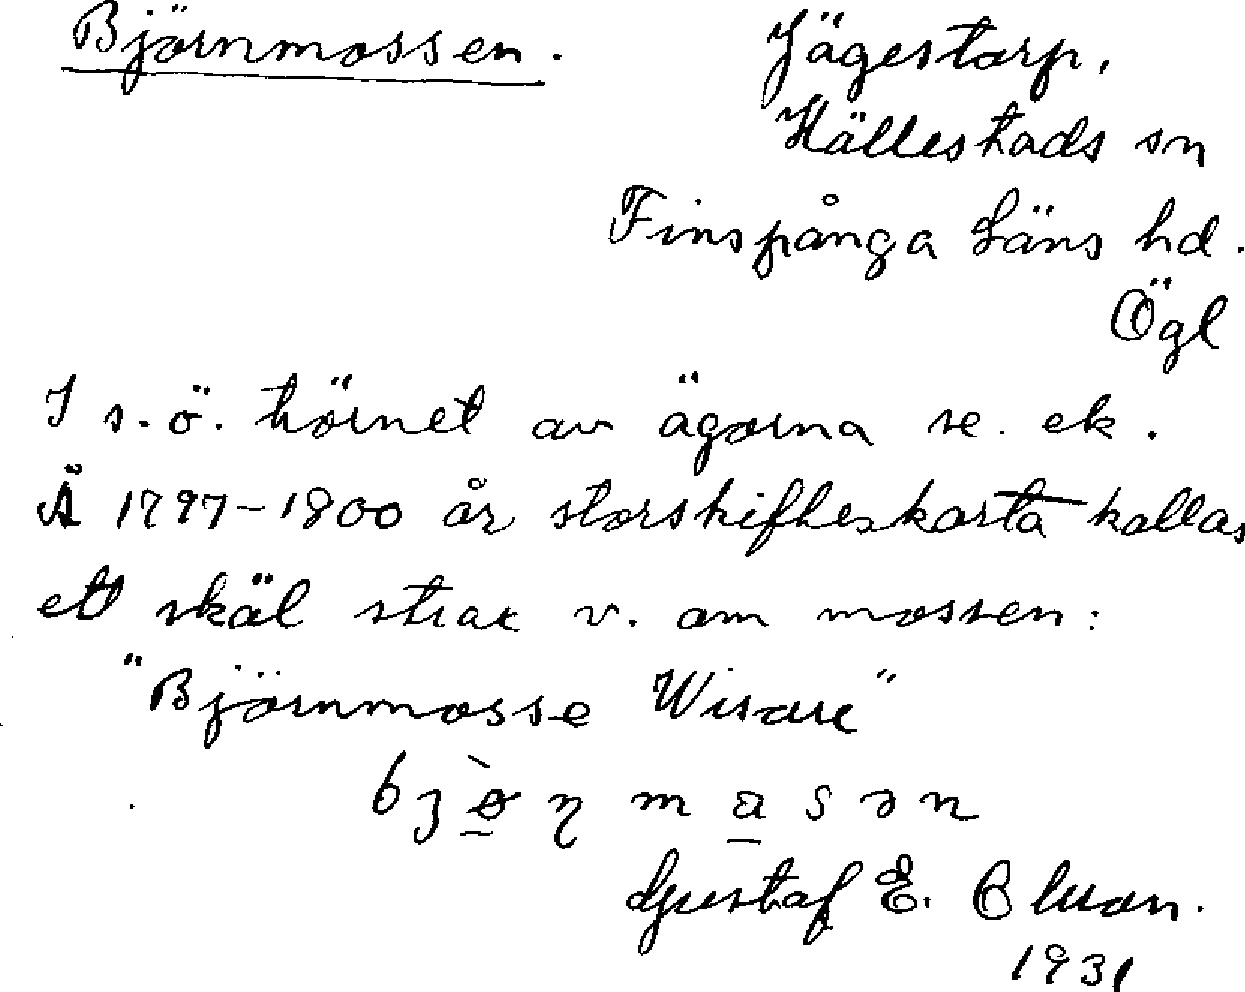 Björnmossen. Jägestorp,
Hällestads sn
Finspånga Läns hd.
Ögl
I s.ö. hörnet av ägorna se. ek.
Å 1797-1800 år storskifteskarta kallas
ett skäl strax v. om mossen:
"Björnmosse Wisare"
Gustaf E.
1931